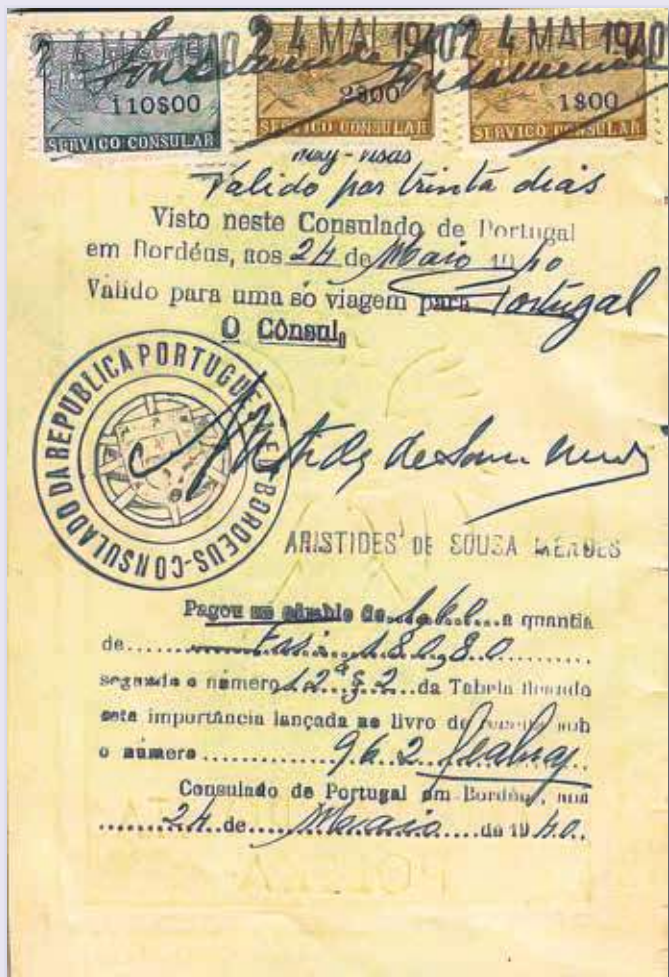 24 MAI 1940 24 MAI 1940 24 MAI 1940
110$00 2$00 1$00
SERVIÇO CONSULAR SERVIÇO CONSULAR SERVIÇO CONSULAR
Valido por trinta dias
Visto neste Consulado de Portugal
em Bordéus, aos 24 de Maio 1940
Válido para uma só viagem para Portugal
O Cônsul,
CONSULADO DA REPUBLICA PORTUGUESA EM BORDEUS
Aristides de Sousa Mendes
ARISTIDES DE SOUSA MENDES
Pagou ao câmbio de 1,60 a quantia
de 180,80
segundo o número da Tabela ficando
esta importância lançada no livro de receita sob
o número 962 Seabra
Consulado de Portugal em Bordéus, aos
24 de Maio de 1940.